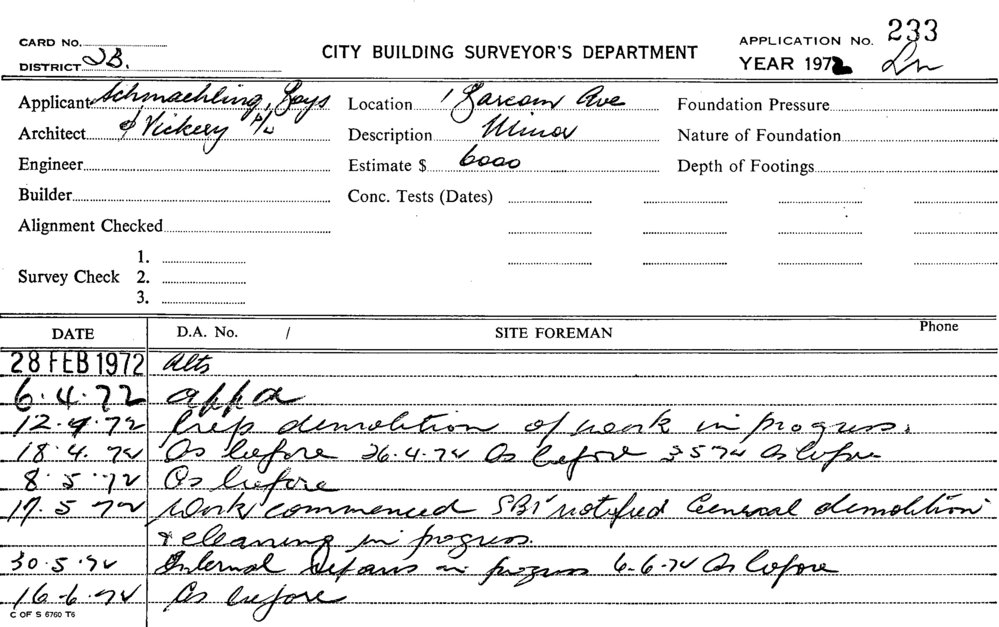 CARD No.
DISTRICT 2B.
CITY BUILDING SURVEYOR'S DEPARTMENT
APPLICATION No. 233
YEAR 1972
Applicant Schmaehling, Gays
Architect & Vickery P/L
Engineer
Builder
Alignment Checked
Survey Check 1.
2.
3.
Location 1 Garcom Ave
Description Minor
Estimate $ 6000
Conc. Tests (Dates)
Foundation Pressure
Nature of Foundation
Depth of Footings
DATE D.A. No. / SITE FOREMAN Phone
28 FEB 1972 Alts
6.4.72 appd
12.4.72 Prep demolition of work in progress.
18.4.72 As before 26.4.72 As before 3 5 72 As before
8.5.72 As before
17.5 72 Work commenced SBI notified General demolition
& cleaning in progress.
30.5.72 Internal repairs in progress 6-6-72 As before
16.6.72 As before
C OF S 6760 T6